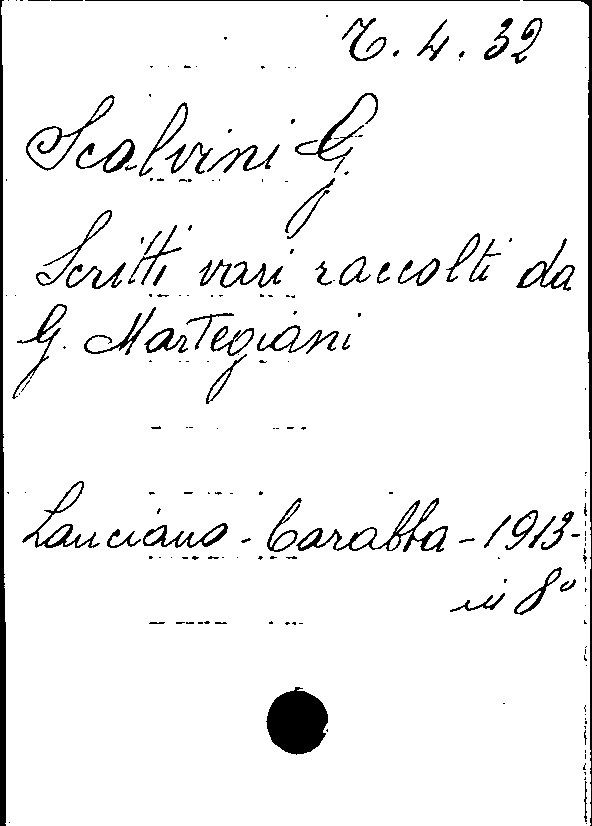 7.4.32
Scalvini G.
Scritti vari raccolti da
G. Martegiani
Lanciano - Carabba - 1913 -
in 8°